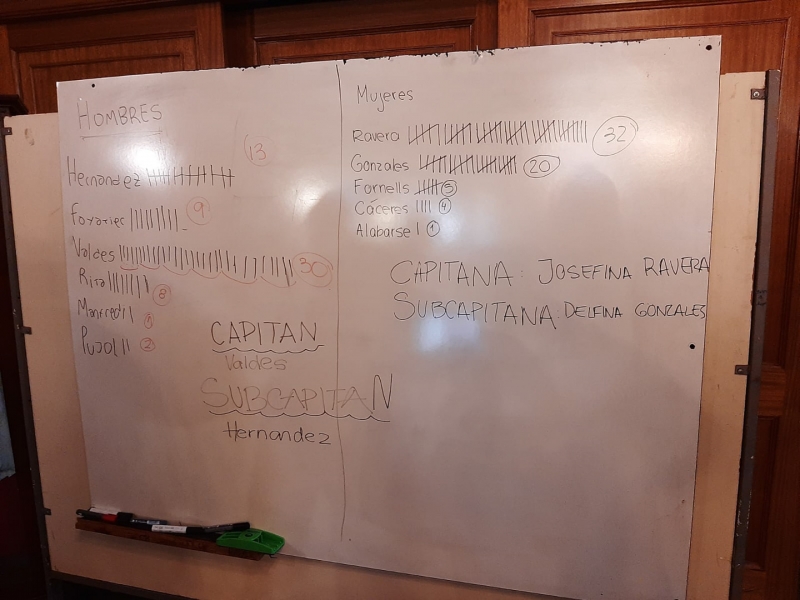 HOMBRES
13
Hernandez
9
Valdes 30
8
Pujol 2
CAPITAN
Valdes
SUBCAPITAN
Hernandez
Mujeres
Ravera 32
Gonzales 20
Fornells 5
Cáceres 4
Alabarse 1
CAPITANA: JOSEFINA RAVERA
SUBCAPITANA: DELFINA GONZALES